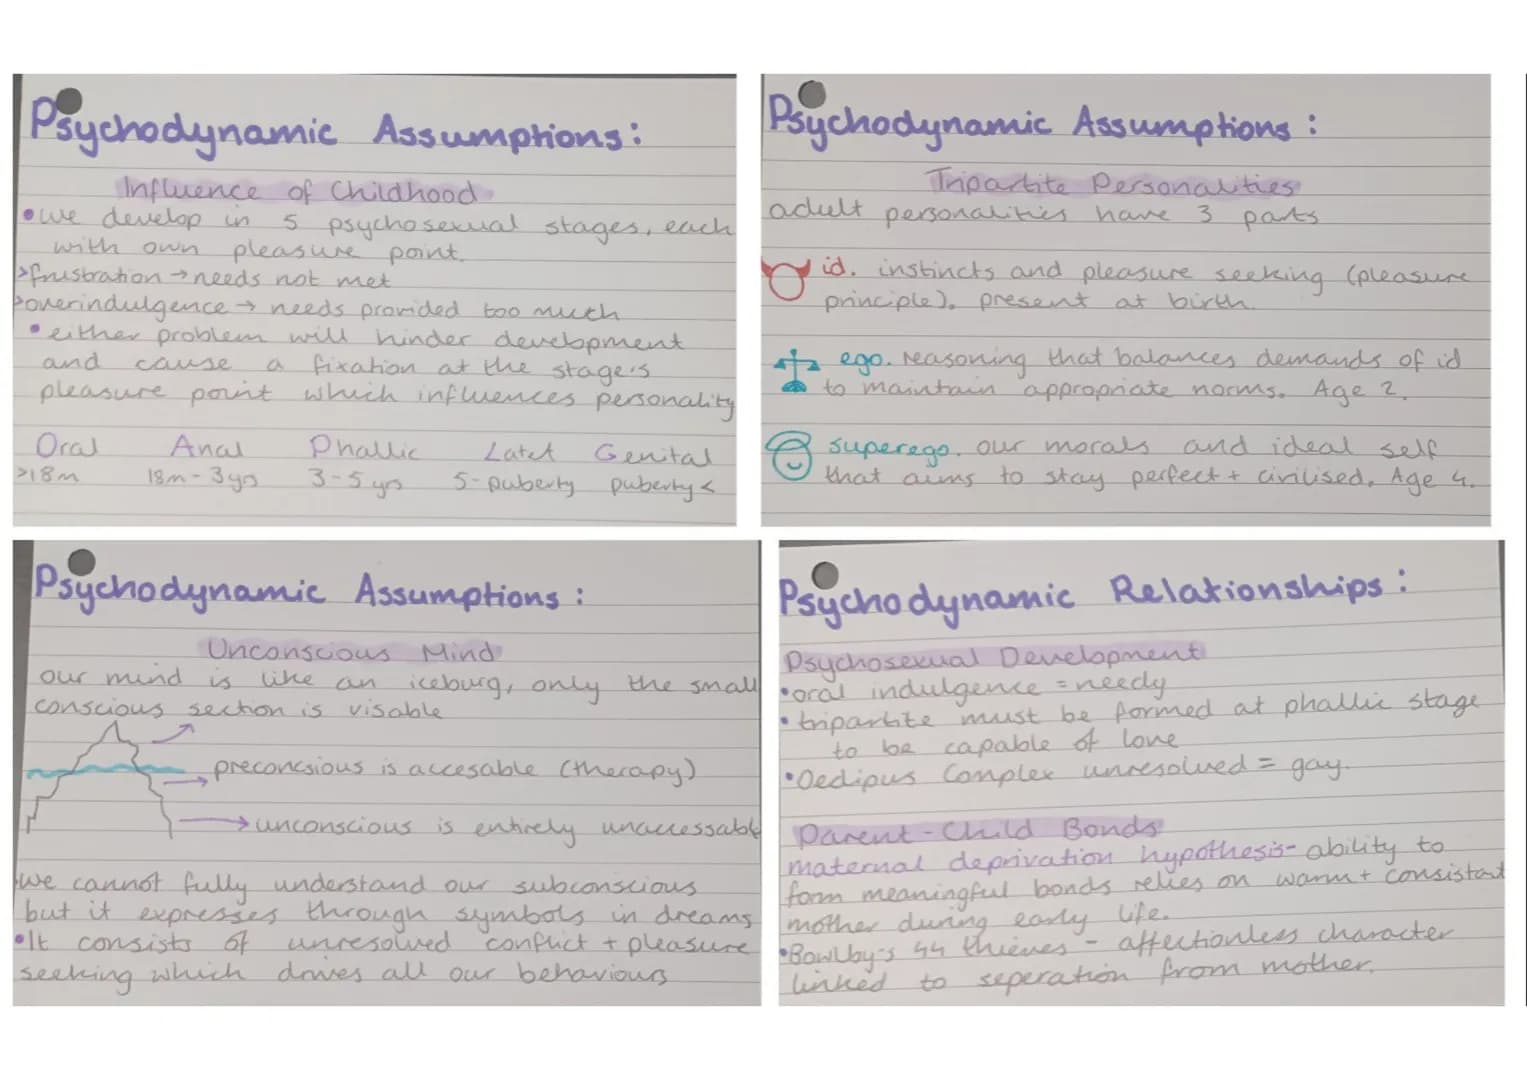 Psychodynamic Assumptions:
Influence of Childhood
•we develop in 5 psychosexual stages, each
with own pleasure point.
>frustration → needs not met
>overindulgence → needs provided too much
•either problem will hinder development
and cause a fixation at the stage's
pleasure point which influences personality
Oral Anal Phallic Latet Genital
>18m 18m-3yrs 3-5 yrs 5-puberty puberty<
Psychodynamic Assumptions:
Tripartite Personalities
adult personalities have 3 parts
id. instincts and pleasure seeking (pleasure
principle). present at birth.
ego. reasoning that balances demands of id
to maintain appropriate norms. Age 2.
superego. our morals and ideal self
that aims to stay perfect + civilised. Age 4.
Psychodynamic Assumptions:
Unconscious Mind
our mind is like an iceburg, only the small
conscious section is visable
preconcsious is accesable (therapy)
unconscious is entirely unaccessable
we cannot fully understand our subconscious
but it expresses through symbols in dreams
•It consists of unresolved conflict + pleasure
seeking which drives all our behaviours
Psychodynamic Relationships:
Psychosexual Development
•oral indulgence = needy
•tripartite must be formed at phallic stage
to be capable of love
•Oedipus Complex unresolved = gay.
Parent-Child Bonds
maternal deprivation hypothesis- ability to
form meaningful bonds relies on warm + consistant
mother during early life.
•Bowlby's 44 thieves - affectionless character
linked to seperation from mother.